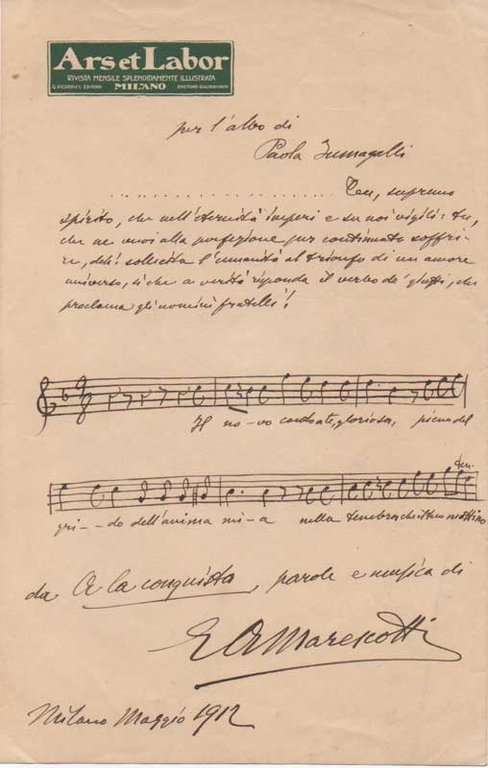 Ars et Labor
RIVISTA MENSILE SPLENDIDAMENTE ILLUSTRATA
MILANO
per l'albo di
Paola Fumagalli
. . . . . . . . . . . . . . . . . . . . Tu, supremo
spirito, che nell'eternità imperi e su noi vigili: tu,
che ne vuoi alla perfezione pur continuato soffri-
re, deh! sollecita l'umanità al trionfo di un amore
universo, sì che a verità risponda il verbo de' giusti, che
proclama gli uomini fratelli!
no-vo gloriosa,
gri--do dell'anima mi-a nella
da A la conquista, parole e musica di
E A Marescotti
Milano Maggio 1912